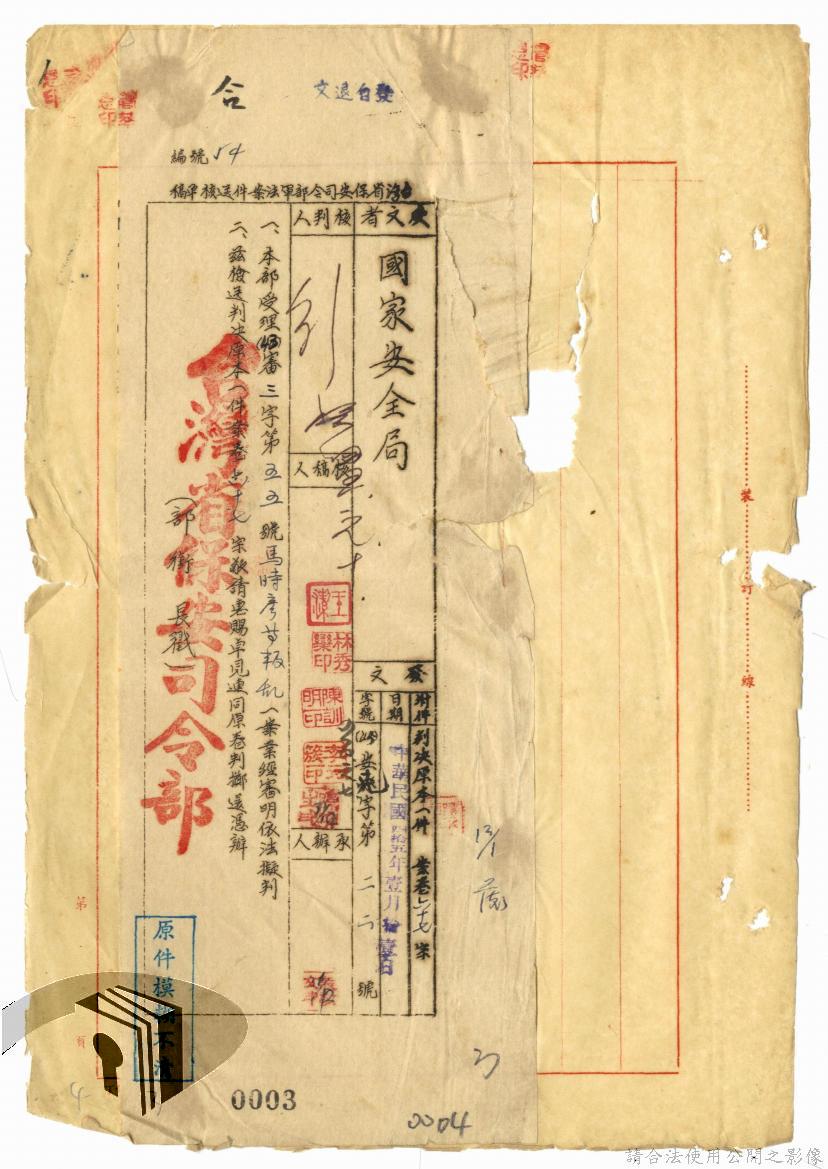 發白退文
合
編號 54
台灣省保安司令部軍法案件送核卑稿
受文者
國家安全局
發文
附件
判決原本一件 案卷六十七宗
日期
中華民國四拾五年壹月拾壹日
字號
安 字第二二號
核判人
核稿人
王潔
林秀欒印
陳訓明印
承辦人
一、本部受理(43)審三字第五五號馬時彥等叛乱一案業經審明依法擬判
二、茲檢送判决原本一件案卷六十七宗敬請惠賜卓見連同原卷判擲還憑辦
(部銜 長戳)
台灣省保安司令部
裝
訂
線
第
頁
原件模糊不清
4
0003
0004
請合法使用公開之影像